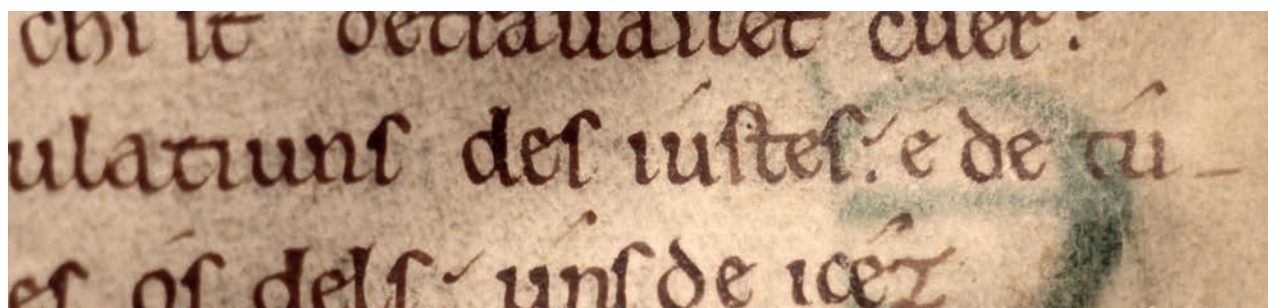 chi sť detrauailet cuer.
ulatiuns des iústes. e de tú-
es ós dels. úns de icéz